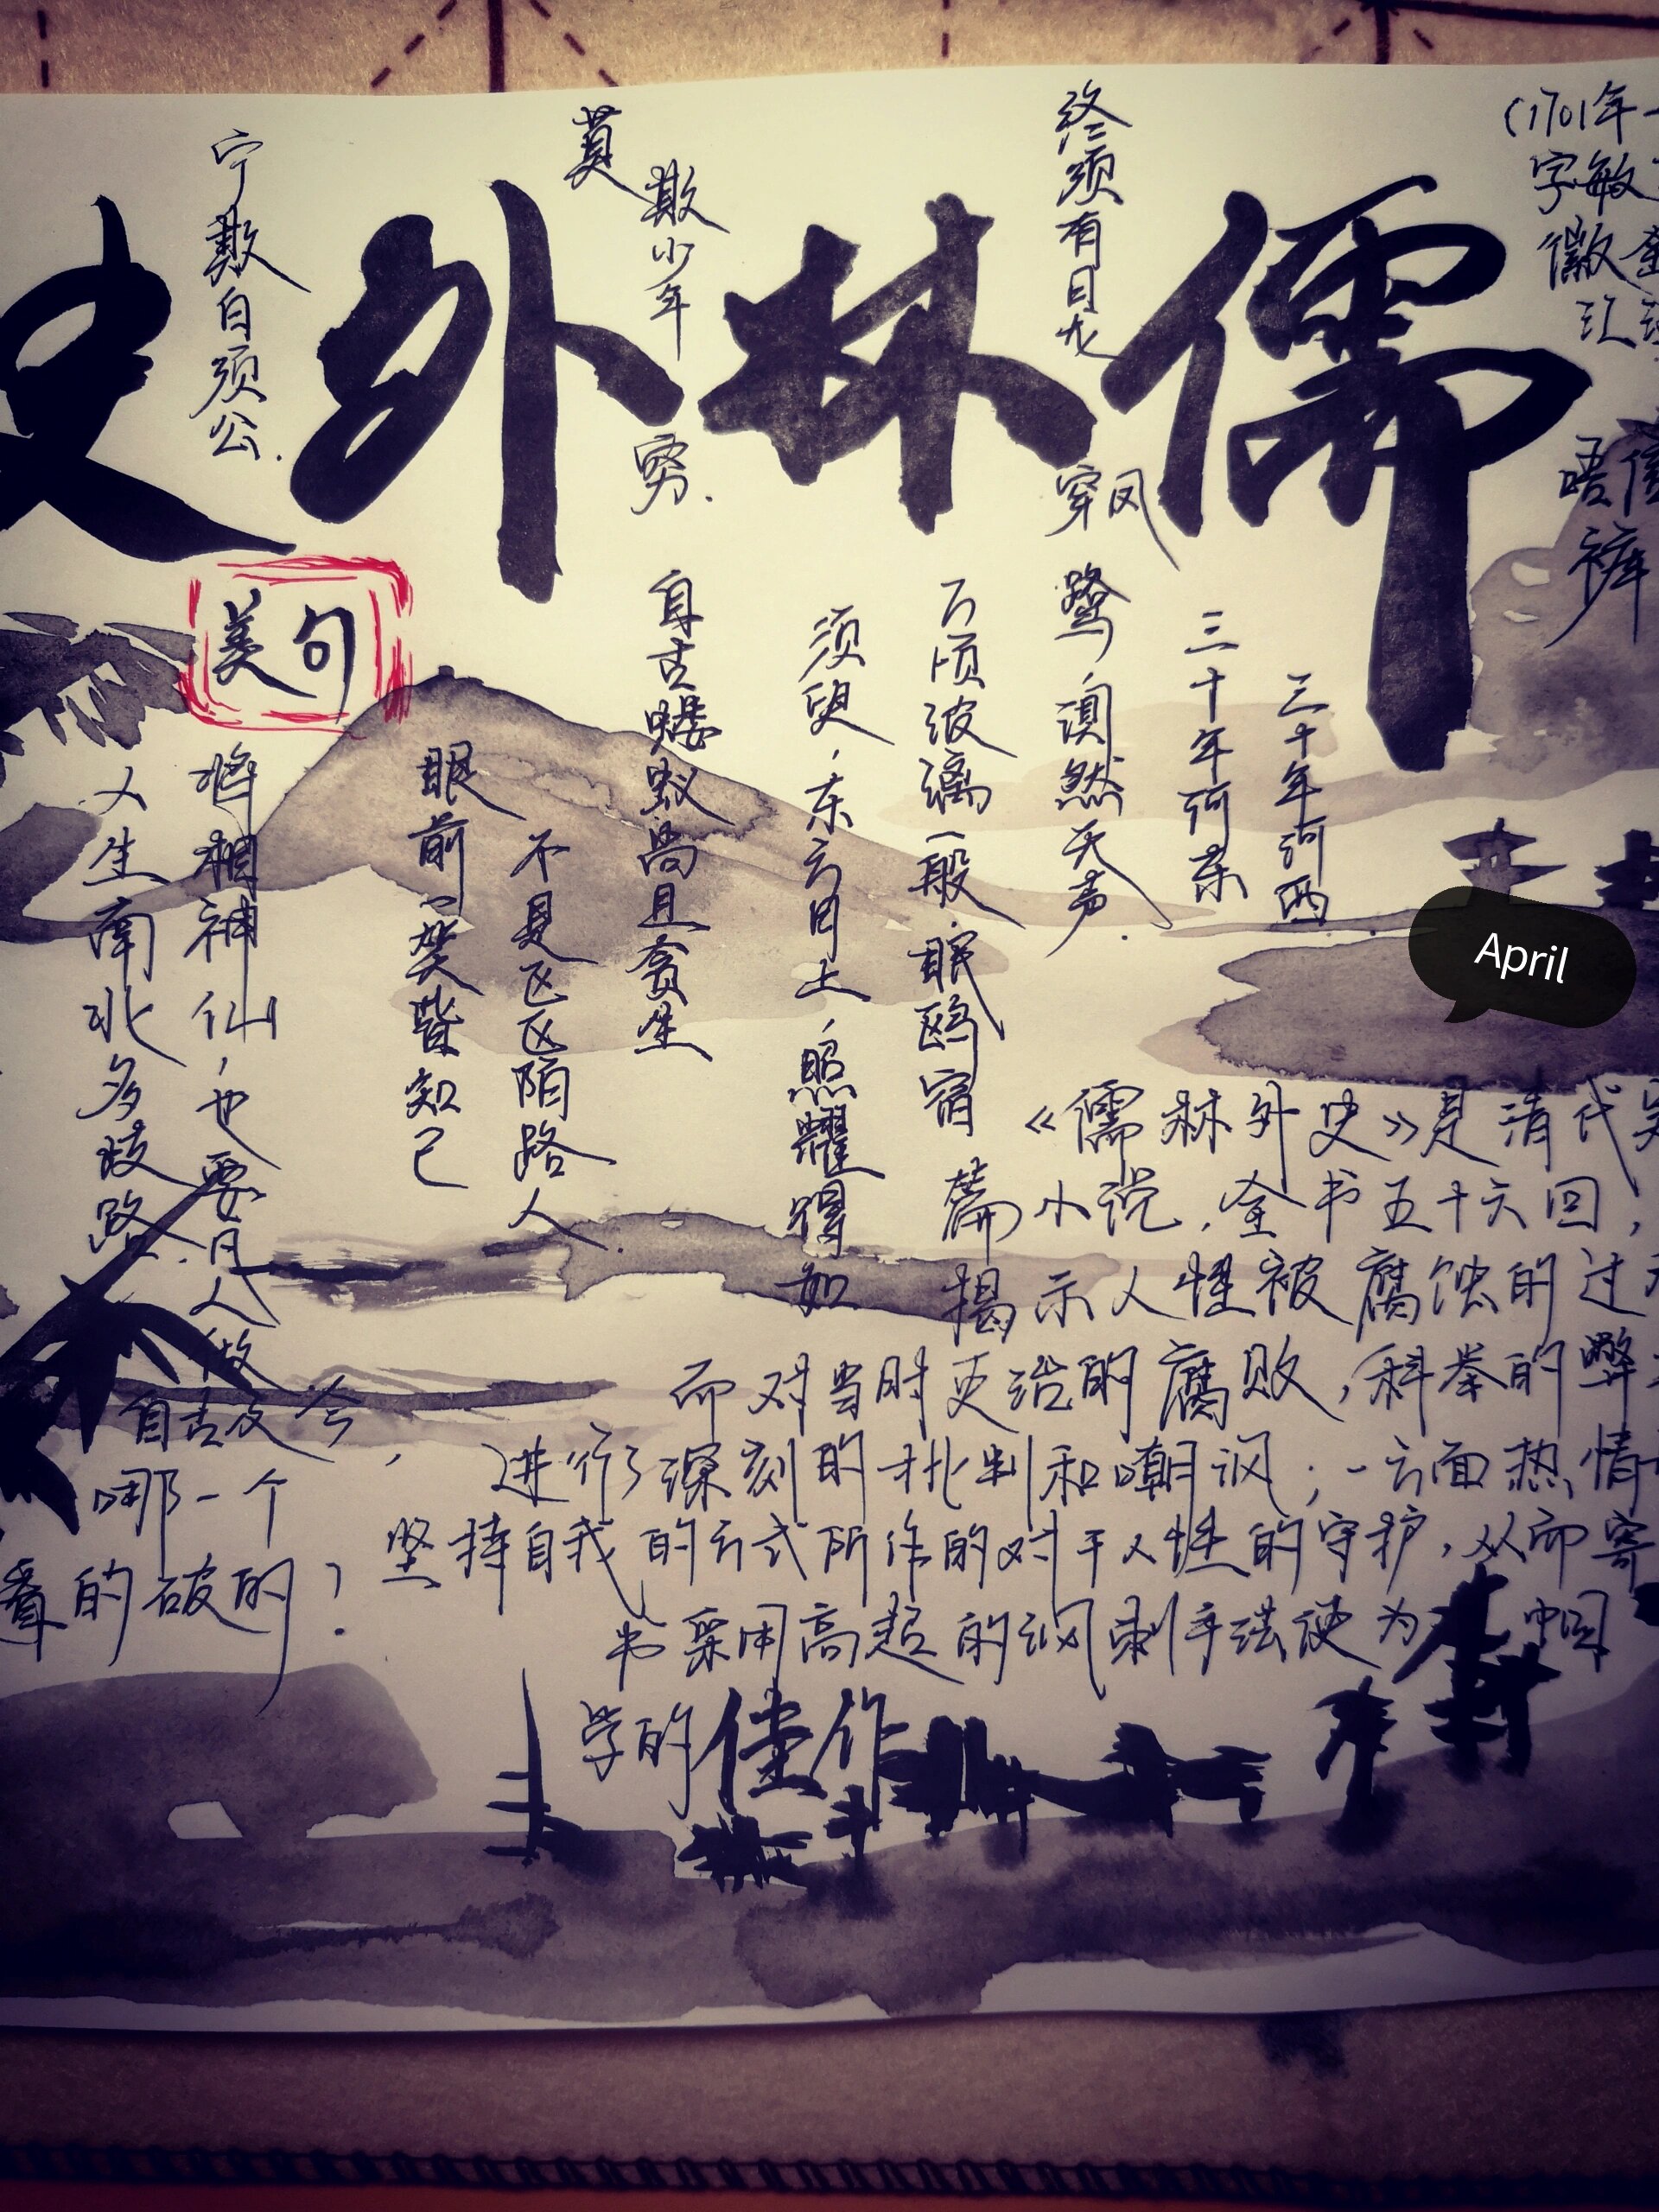 儒林外史
(1701年
字敏
徽
终须有日龙
穿风
莫欺少年
穷.
宁欺白须公.
美句
三十年河西
三十年河东
鹭,
然天声.
万顷玻璃一般.眠鸥宿
须臾,东方月上,照耀得如
自古蝼蚁尚且贪生
不是区区陌路人.
眼前一笑皆知己
将相神仙,也要凡人做
人生南北多歧路.
自古及今,
哪一个
看的破的?
《儒林外史》是清代吴
篇小说.全书五十六回,
揭示人性被腐蚀的过
而对当时吏治的腐败,科举的弊
进行了深刻的批判和嘲讽;一方面热情
坚持自我的方式所作的对于人性的守护,从而寄
书采用高超的讽刺手法使为 中国
学的佳作
April